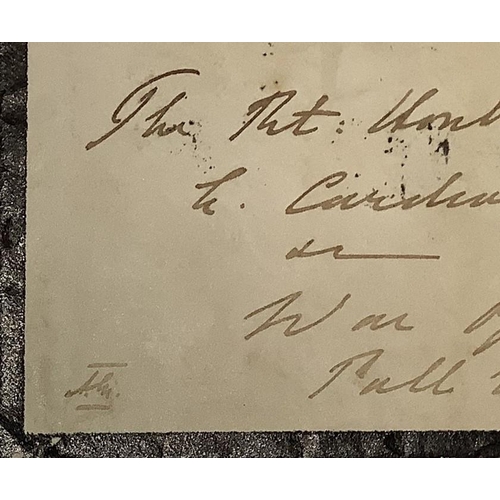 The Rt: Honb
E. Cardw
&c
War Of
Pall